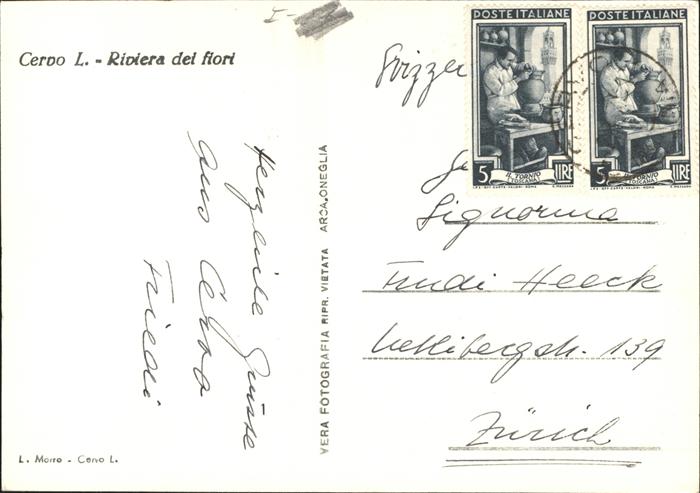 Cervo L. - Riviera dei fiori
Herzliche Grüsse
aus Cervo
Friedi
L. Morro - Cervo L.
VERA FOTOGRAFIA RIPR. VIETATA ARCA, ONEGLIA
POSTE ITALIANE
5 IL TORNIO LIRE
(TOSCANA)
POSTE ITALIANE
5 IL TORNIO LIRE
(TOSCANA)
Svizzer
Signorina
Trudi Heeck
Uetlibergstr. 139
Zürich